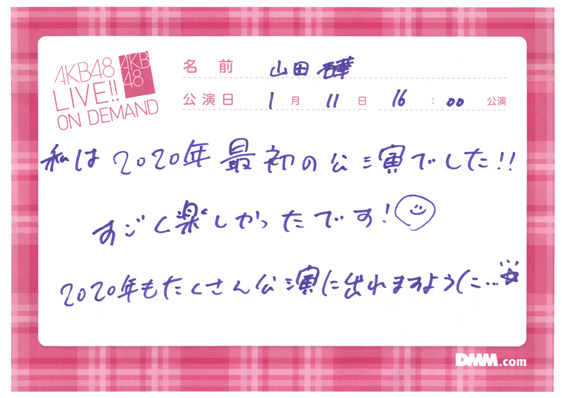 AKB48
LIVE!!
ON DEMAND
AKB
48
名前 山田 杏華
公演日 1月 11日 16:00 公演
私は2020年最初の公演でした!!
すごく楽しかったです!
2020年もたくさん公演に出れますように…
DMM.com